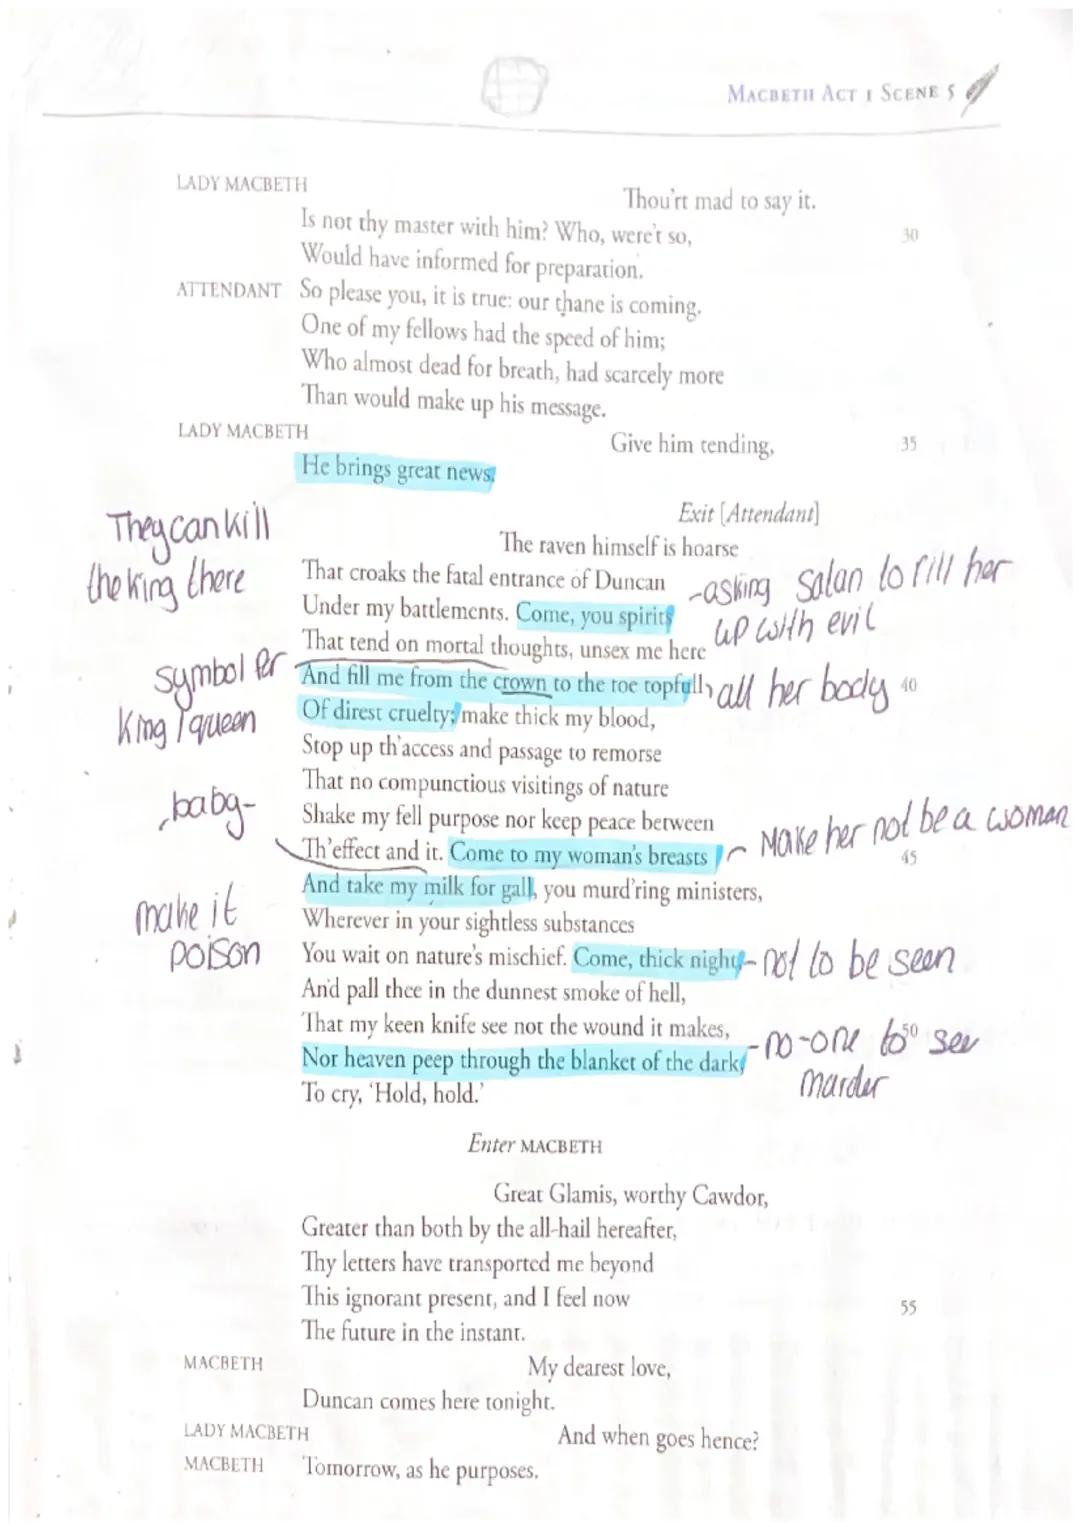 MACBETH ACT 1 SCENE 5
LADY MACBETH
Thou'rt mad to say it.
Is not thy master with him? Who, were't so, 30
Would have informed for preparation.
ATTENDANT So please you, it is true: our thane is coming.
One of my fellows had the speed of him;
Who almost dead for breath, had scarcely more
Than would make up his message.
LADY MACBETH
Give him tending, 35
He brings great news.
Exit [Attendant]
They can kill
the king there
The raven himself is hoarse
That croaks the fatal entrance of Duncan
-asking Satan to fill her
up with evil
Under my battlements. Come, you spirits
That tend on mortal thoughts, unsex me here
symbol for
King / queen
And fill me from the crown to the toe topfull 40
all her body
Of direst cruelty; make thick my blood,
Stop up th'access and passage to remorse
That no compunctious visitings of nature
baby-
Shake my fell purpose nor keep peace between
Th'effect and it. Come to my woman's breasts 45
Make her not be a woman
And take my milk for gall, you murd'ring ministers,
make it
poison
Wherever in your sightless substances
You wait on nature's mischief. Come, thick night,
- not to be seen
And pall thee in the dunnest smoke of hell,
That my keen knife see not the wound it makes, 50
-no-one to see
marder
Nor heaven peep through the blanket of the dark,
To cry, 'Hold, hold.'
Enter MACBETH
Great Glamis, worthy Cawdor,
Greater than both by the all-hail hereafter,
Thy letters have transported me beyond
This ignorant present, and I feel now 55
The future in the instant.
MACBETH My dearest love,
Duncan comes here tonight.
LADY MACBETH And when goes hence?
MACBETH Tomorrow, as he purposes.